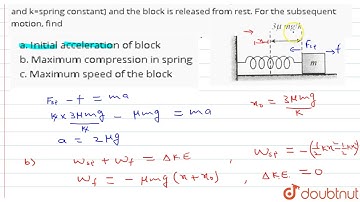 and k=spring constant) and the block is released from rest. For the subsequent
motion, find
a. Initial acceleration of block
b. Maximum compression in spring
c. Maximum speed of the block
3μ mg/k
Fsp
f
m
Fsp - f = ma
k × 3μmg/k - μmg = ma
a = 2μg
x₀ = 3μmg/k
b) Wsp + Wf = ΔKE , Wsp = -(1/2 kx² - 1/2 kx₀²)
Wf = - μmg (x + x₀) , ΔKE = 0
doubtnut